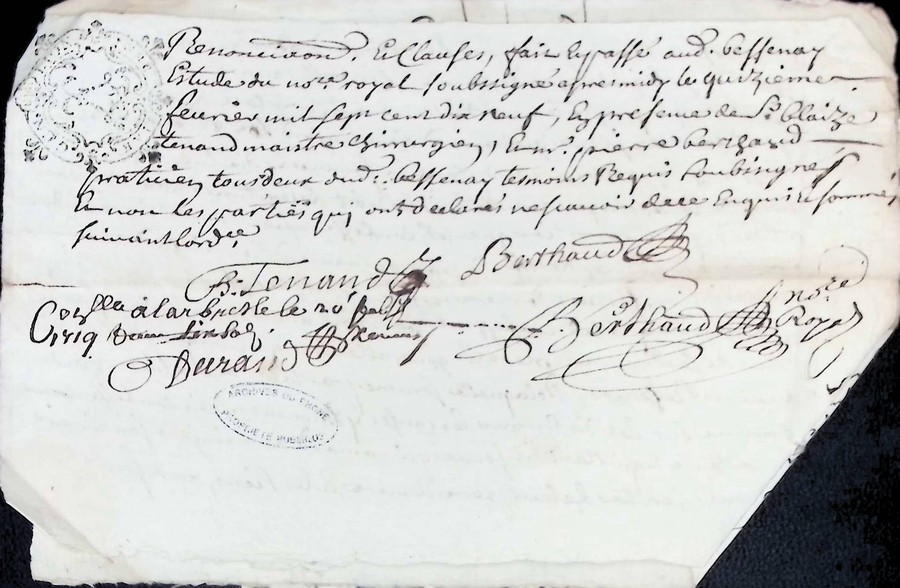 Renonciaons. Et Clauses, fait et passé aud. bessenay
Estude du no.re royal soubsigné apres midy le quizieme
feuvrier mil sept cent dix neuf, En presence de S.r blaize
tenand maistre chirurgien, Et m.r pierre berthaud
praticien tous deux dud. bessenay tesmoins Requis soubsignes
Et non les parties qui ont declarés ne scavoir de ce Enquis et sommés
suivant lord.ce
B. Tenand Berthaud
Con.lle a larbresle le 20
1719
Berthaud no.re Royal
Durand
ARCHIVES DU RHONE
PROPRIETE PUBLIQUE